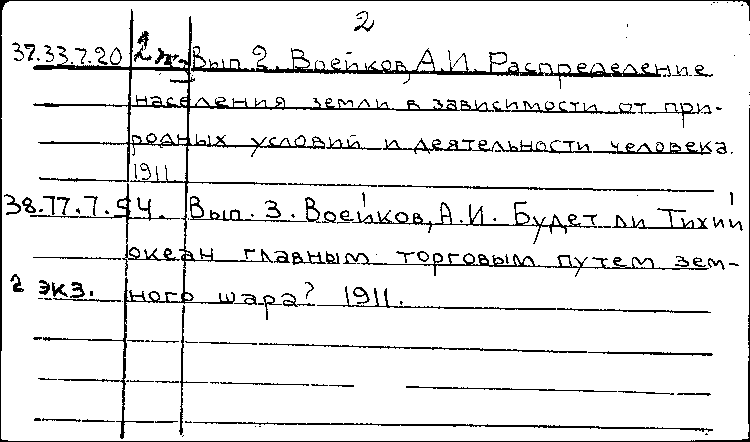 2
37.33.7.20 2 Вып. 2. Воейков, А.И. Распределение
населения земли в зависимости от при-
родных условий и деятельности человека.
1911
38.77.7.54. Вып. 3. Воейков, А.И. Будет ли Тихий
океан главным торговым путем зем-
2 экз. ного шара? 1911.